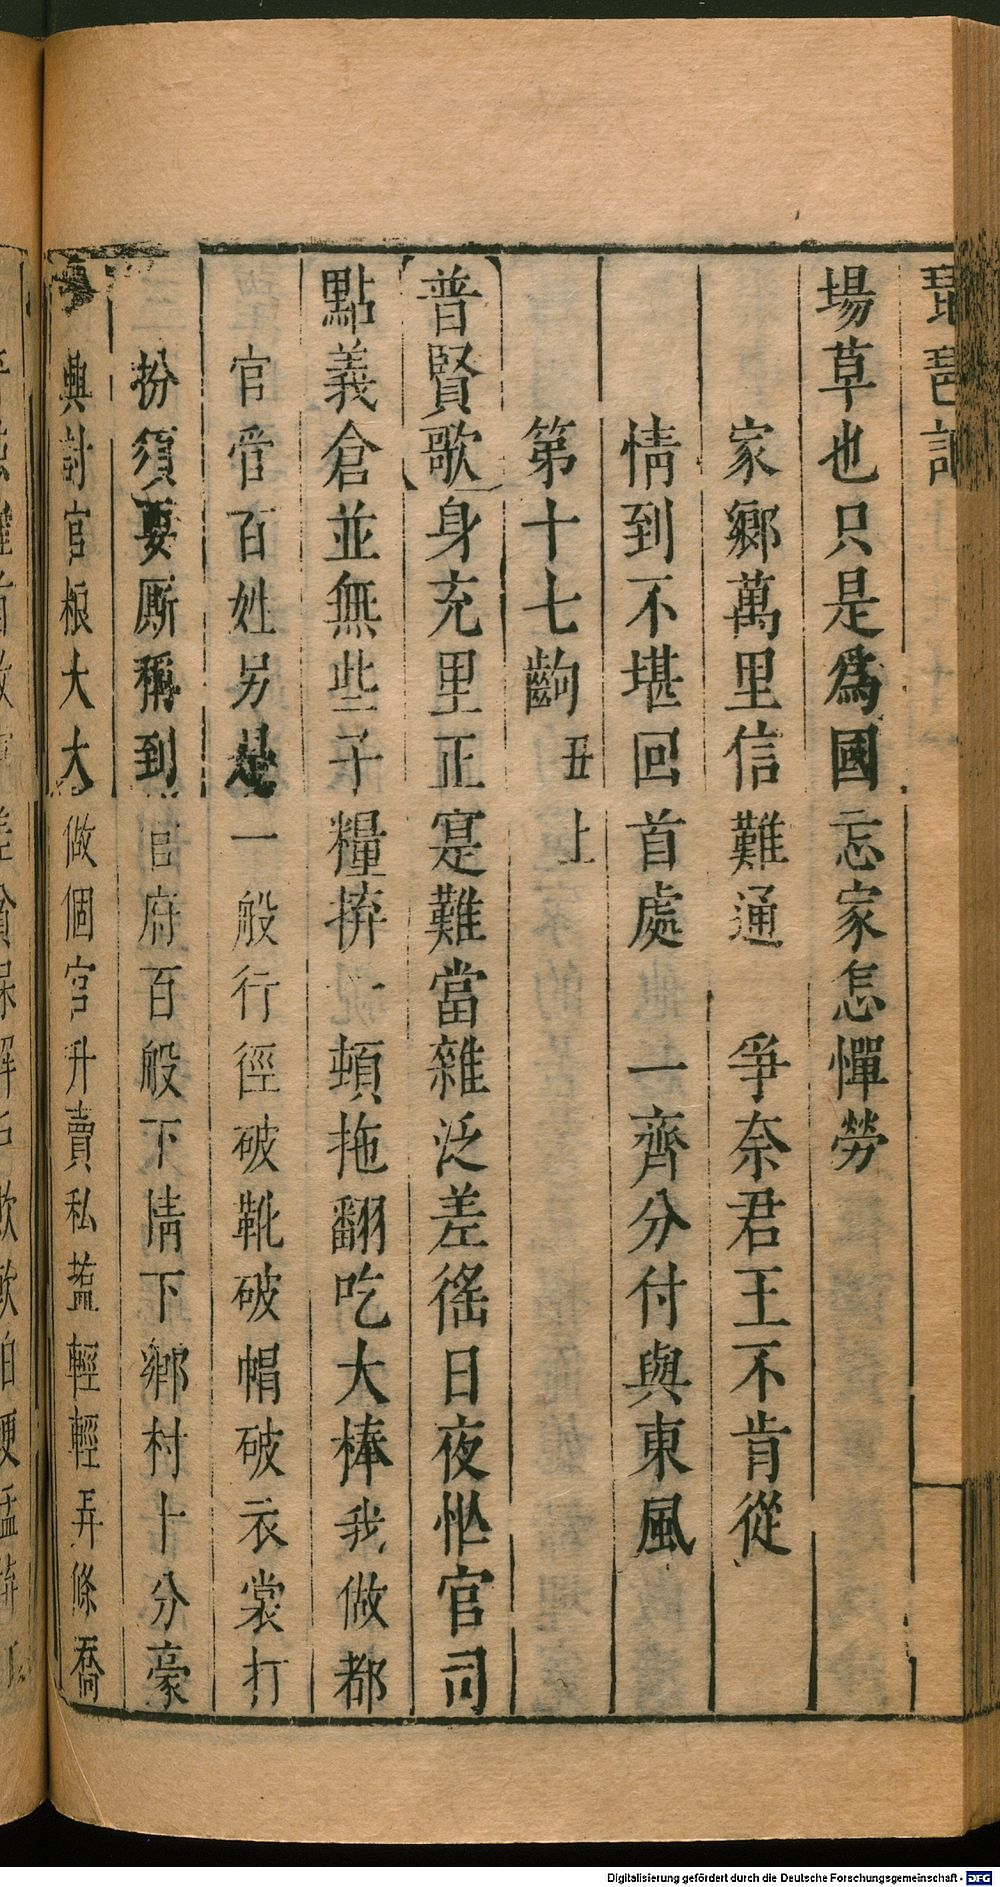 琵琶記
場草也只是爲國忘家怎憚勞
家鄉萬里信難通　爭奈君王不肯從
情到不堪回首處　一齊分付與東風
第十七齣 丑上
普賢歌 身充里正寔難當雜泛差徭日夜忙官司
點義倉並無些子糧拚一頓拖翻吃大棒我做都
官管百姓另是一般行徑破靴破帽破衣裳打
扮須要厮稱到官府百般下情下鄉村十分豪
興討官粮大大做個官升賣私蓝輕輕弄條喬
Digitalisierung gefördert durch die Deutsche Forschungsgemeinschaft - DFG